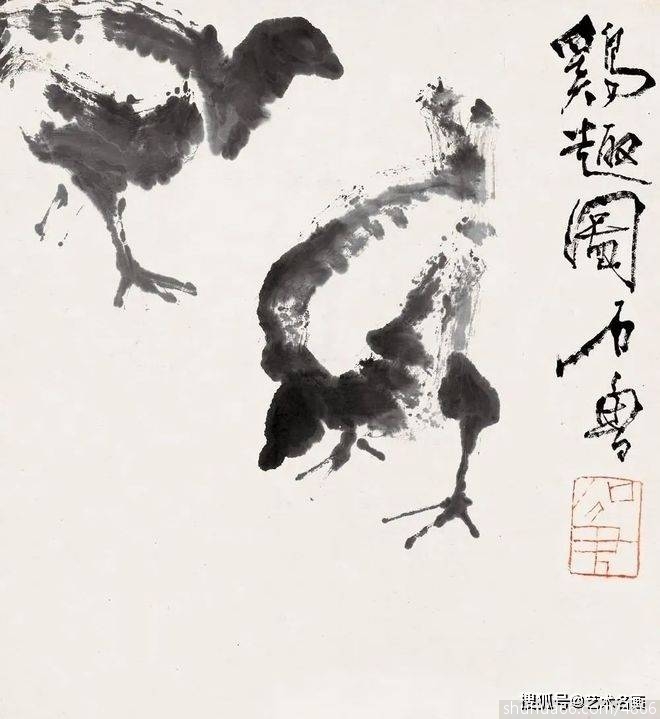 鷄趣圖石魯
搜狐号@艺术名画